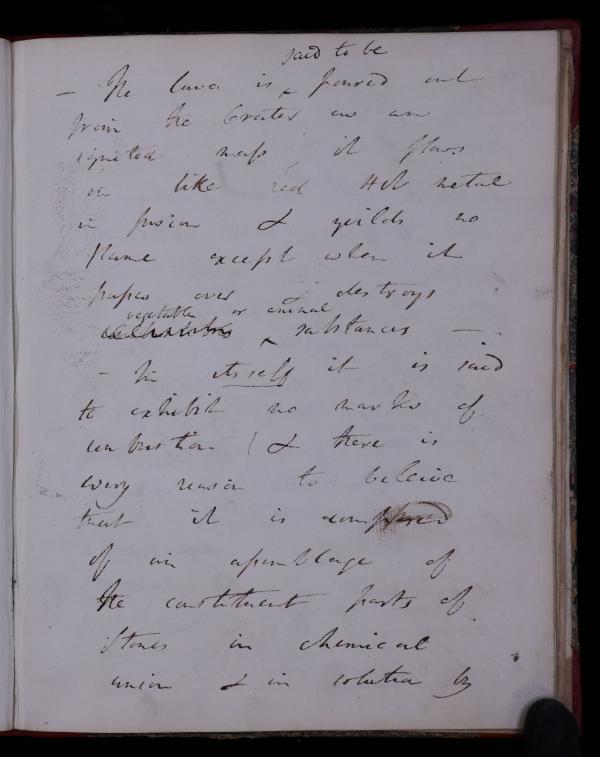 said to be
– The lava is ^ poured out
from the Crater as an
ignited mass, it flows
on like red Hot metal
in fusion & yeilds no
flame except when it
passes over & destroys
vegetable or animal
^ substances —
– In itself it is said
to exhibit no marks of
combustion ( & there is
every reason to beleive
that it is composed
of an assemblage of
the constituent parts of
Stones in chemical
union & in solution by